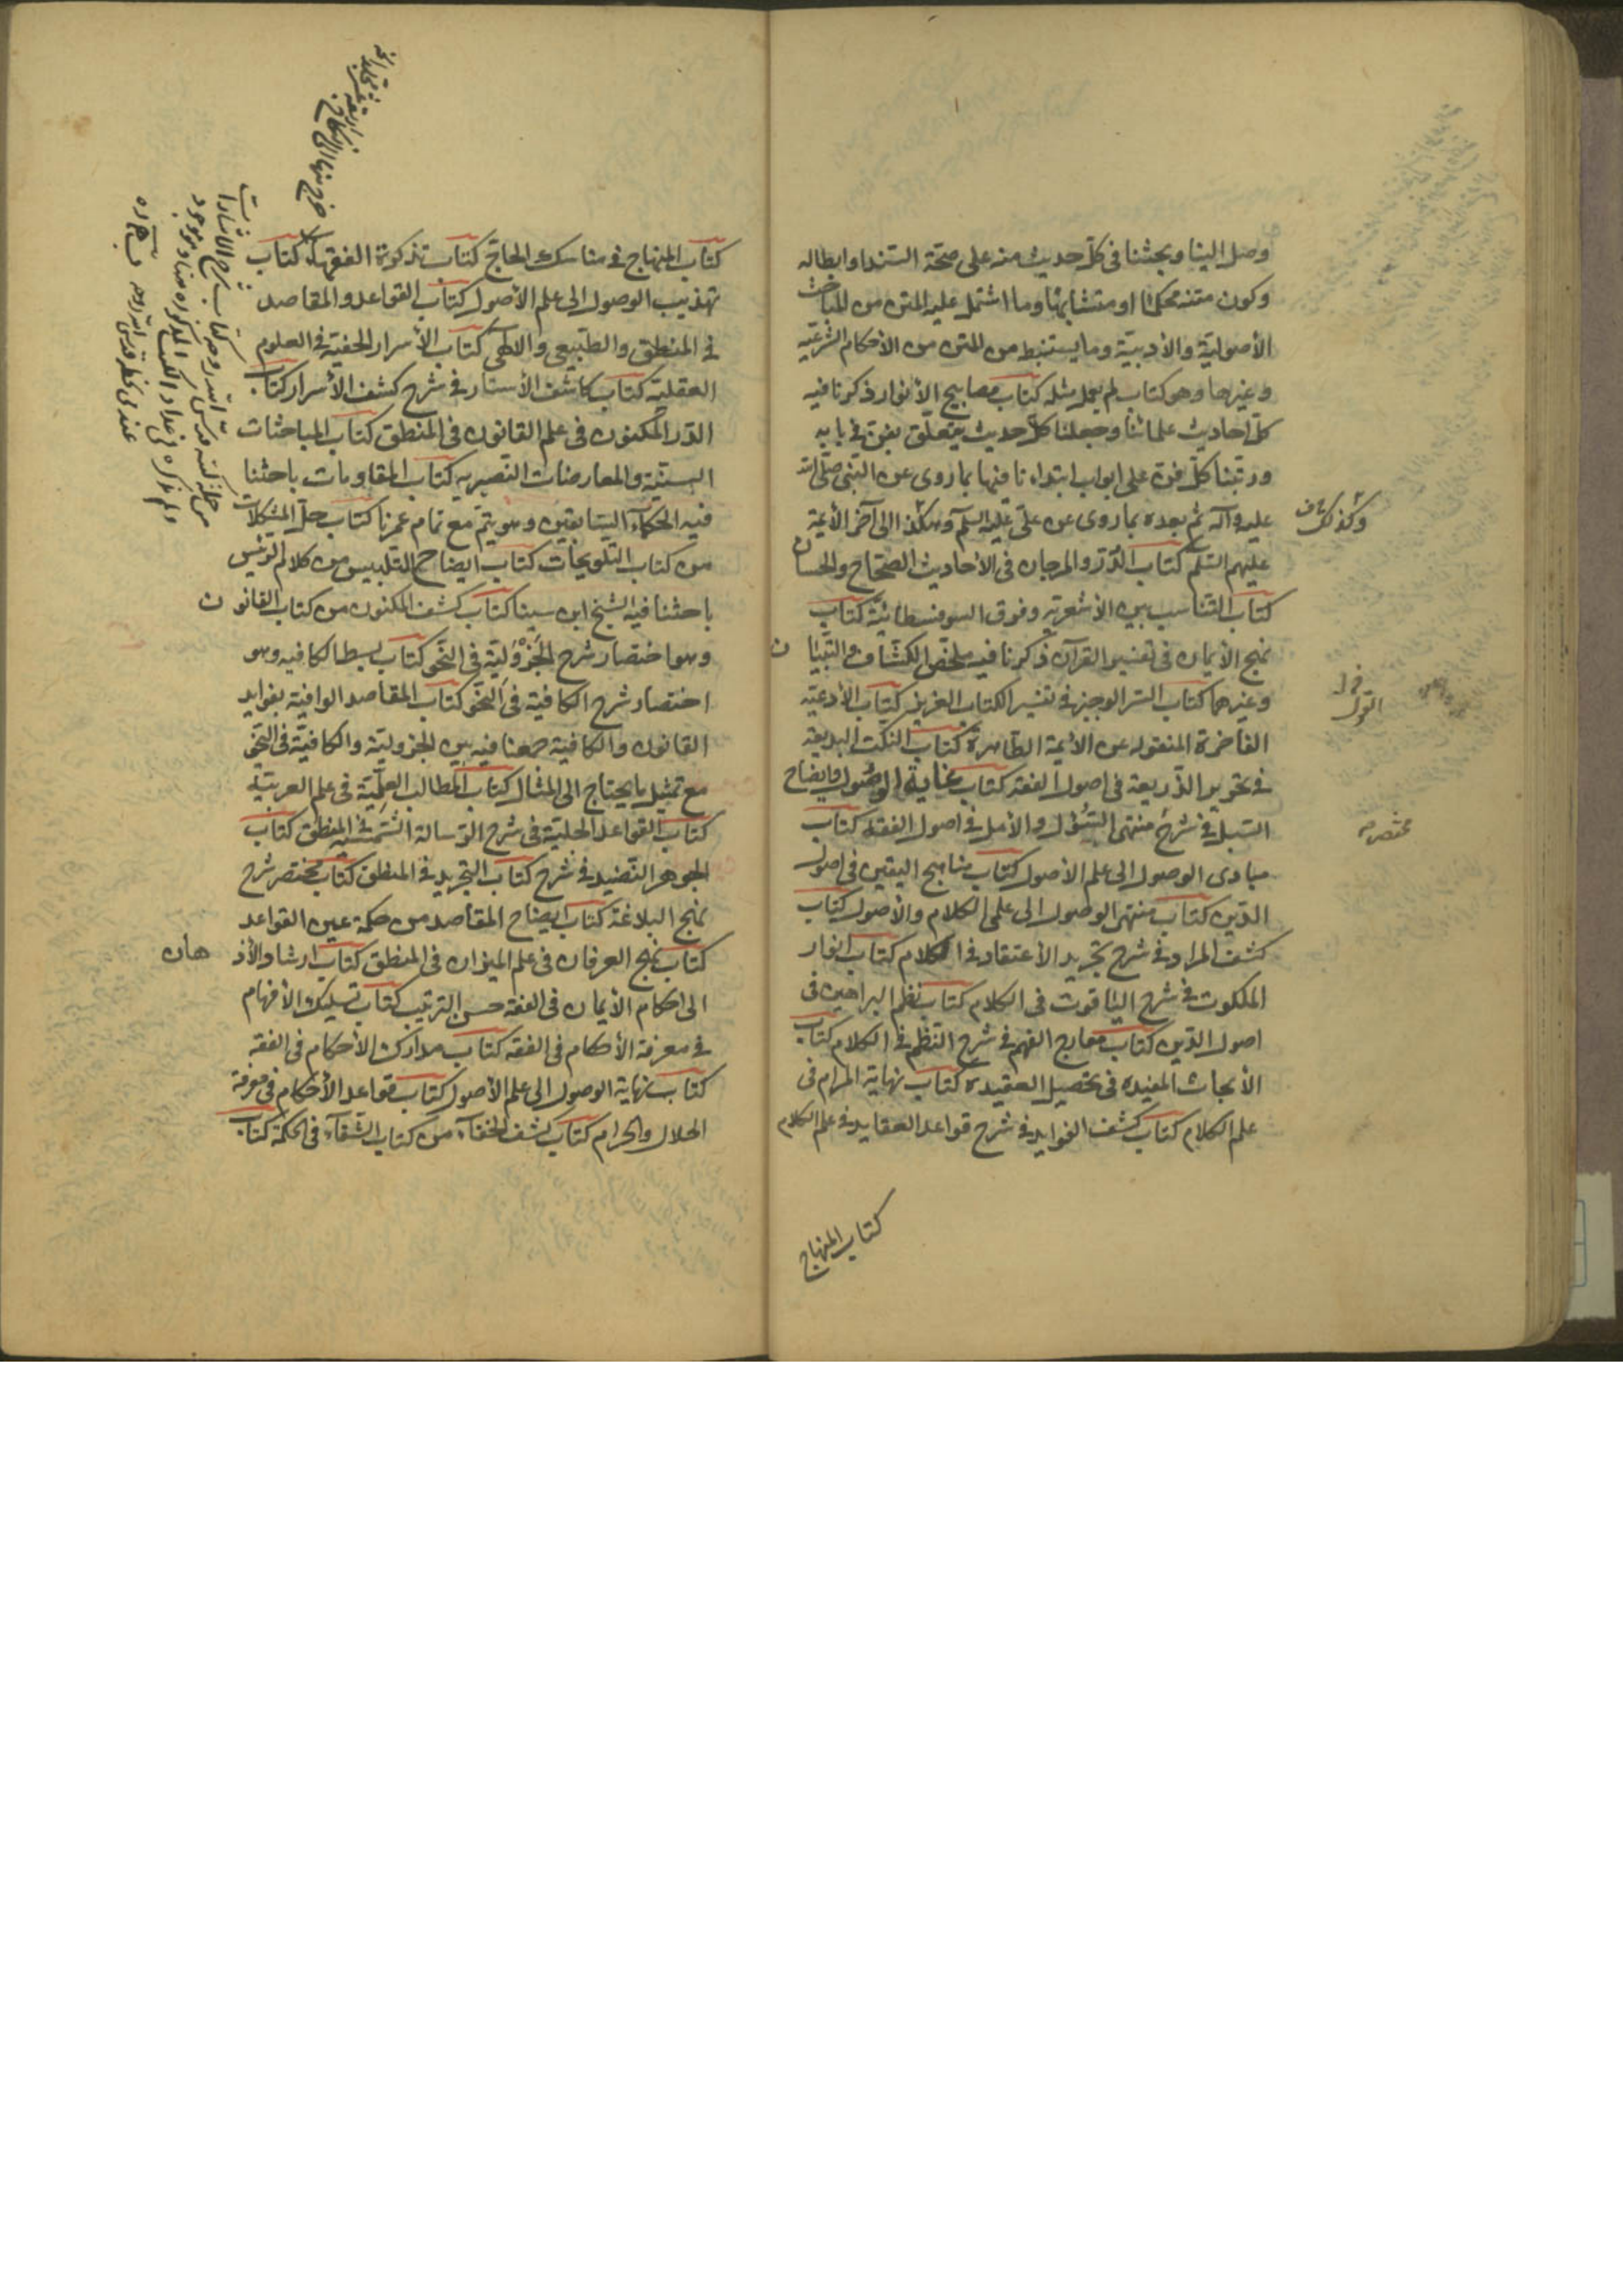 وصل الينا وبحثنا فى كلّ حديث منه على صحّة السّند او ابطاله
وكون متنه محكما او متشابها وما اشتمل عليه المتن من المباحث
الأصولية والأدبية وما يستنبط من المتن من الأحكام الشرعيّه
وغيرها وهو كتاب لم يعمل مثله كتاب مصابيح الأنوار ذكرنا فيه
كل احاديث علمائنا وجعلنا كلّ حديث يتعلّق بفنّ فى بابه
ورتّبنا كلّ فنّ على ابواب ابتداءنا فيها بما روى عن النّبى صلّى الله
عليه وآله ثم بعده بما روى عن علىّ عليه السلم وهكذا الى آخر الأئمة
عليهم السّلم كتاب الدّرّ والمرجان فى الأحاديث الصّحاح والحسان
كتاب التّناسب بين الأشعرية وفرق السوفسطائيّة كتاب
نهج الأيمان فى تفسير القرآن ذكرنا فيه ملخّص الكشّاف والتّبيان
وغيرهما كتاب السّر الوجيز فى تفسير الكتاب العزيز كتاب الأدعيّه
الفاخرة المنقوله عن الأئمة الطّاهرة كتاب النكت البديعة
فى تحرير الذّريعة فى اصول الفقه كتاب غاية الوصول وايضاح
السّبل فى شرح منتهى السّؤل والأمل فى اصول الفقه كتاب
مبادى الوصول الى علم الأصول كتاب مناهج اليقين فى اصول
الدّين كتاب منتهى الوصول الى علمى الكلام والأصول كتاب
كشف المراد فى شرح تجريد الأعتقاد فى الكلام كتاب انوار
الملكوت فى شرح الياقوت فى الكلام كتاب نظم البراهين فى
اصول الدّين كتاب معارج الفهم فى شرح النّظم فى الكلام كتاب
الأبحاث المفيده فى تحصيل العقيده كتاب نهاية المرام فى
علم الكلام كتاب كشف الفوايد فى شرح قواعد العقايد فى علم الكلام
كتاب المنهاج
مختصر
كتاب المنهاج فى مناسك الحاجّ كتاب تذكرة الفقهاء كتاب
تهذيب الوصول الى علم الأصول كتاب القواعد والمقاصد
فى المنطق والطّبيعى والالهى كتاب الأسرار الخفية فى العلوم
العقلية كتاب كاشف الأستار فى شرح كشف الأسرار كتاب
الدّر المكنون فى علم القانون فى المنطق كتاب المباحثات
السنيّة والمعارضات النّصيريه كتاب المقاومات باحثنا
فيه الحكماء السّابقين وهو يتمّ مع تمام عمرنا كتاب حلّ المشكلات
من كتاب التلويحات كتاب ايضاح التّلبيس من كلام الرئيس
باحثنا فيه الشيخ ابن سينا كتاب كشف المكنون من كتاب القانون
وهو اختصار شرح الجزوليّة فى النّحو كتاب بسط الكافيه وهو
اختصار شرح الكافية فى النّحو كتاب المقاصد الوافية بفوايد
القانون والكافية جمعنا فيه بين الجزوليّة والكافيّة فى النّحو
مع تمثيل ما يحتاج الى المثال كتاب المطالب العليّة فى علم العربيّة
كتاب القواعد الجليّة فى شرح الرّسالة الشّمسيه فى المنطق كتاب
الجوهر النّضيد فى شرح كتاب التجريد فى المنطق كتاب مختصر شرح
نهج البلاغة كتاب ايضاح المقاصد من حكمة عين القواعد
كتاب نهج العرفان فى علم الميزان فى المنطق كتاب ارشاد الأذ هان
الى احكام الأيمان فى الفقه حسن الترتيب كتاب تسليك الأفهام
فى معرفة الأحكام فى الفقه كتاب مدارك الأحكام فى الفقه
كتاب نهاية الوصول الى علم الأصول كتاب قواعد الأحكام فى معرفة
الحلال والحرام كتاب كشف الخفاء من كتاب الشّفاء فى الحكمة كتاب